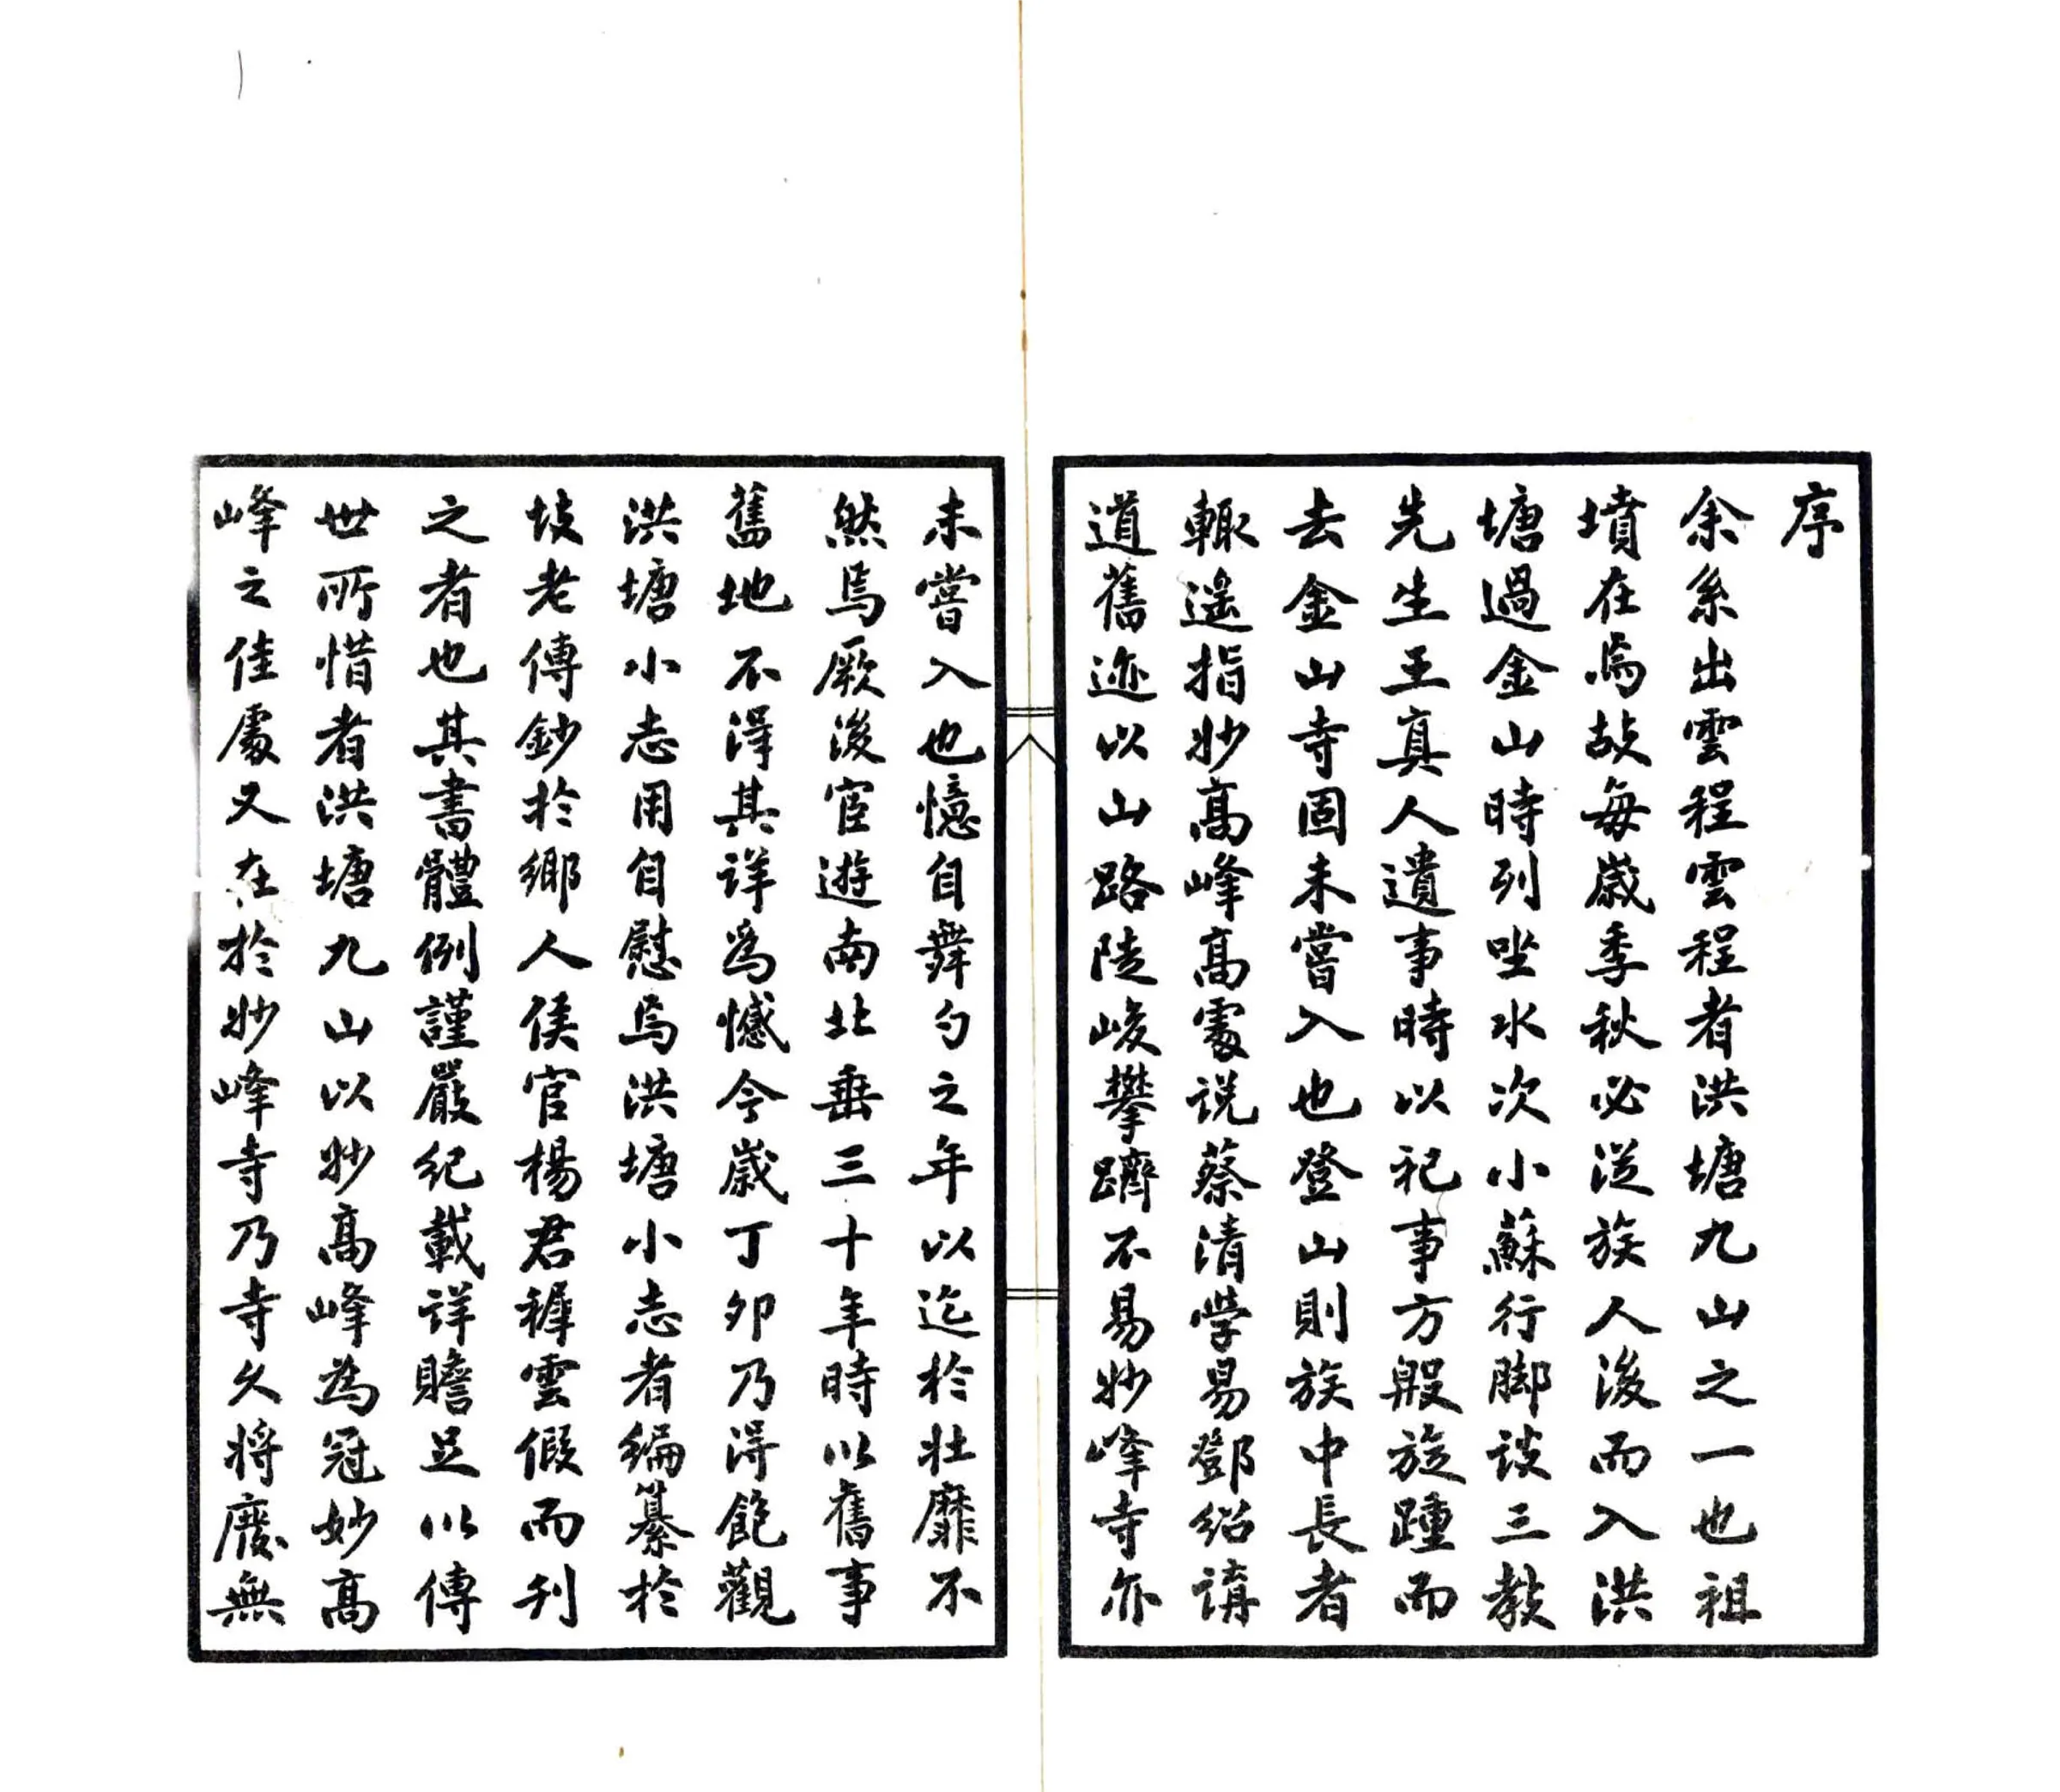 序
余系出雲程雲程者洪塘九山之一也祖
墳在焉故每歲季秋必從族人後而入洪
塘過金山時列坐水次小蘇行脚談三教
先生王真人遺事時以祀事方般旋踵而
去金山寺固未嘗入也登山則族中長者
輙遙指妙高峰高處說蔡清學易鄧紹講
道舊迹以山路陡峻攀躋不易妙峰寺亦
未嘗入也憶自舞勺之年以迄於壯靡不
然焉厥後宦遊南北垂三十年時以舊事
舊地不得其詳爲憾今歲丁卯乃得飽觀
洪塘小志用自慰焉洪塘小志者編纂於
坡老傳鈔於鄉人侯官楊君穉雲假而刋
之者也其書體例謹嚴紀載詳贍足以傳
世所惜者洪塘九山以妙高峰為冠妙高
峰之佳處又在於妙峰寺乃寺久將廢無